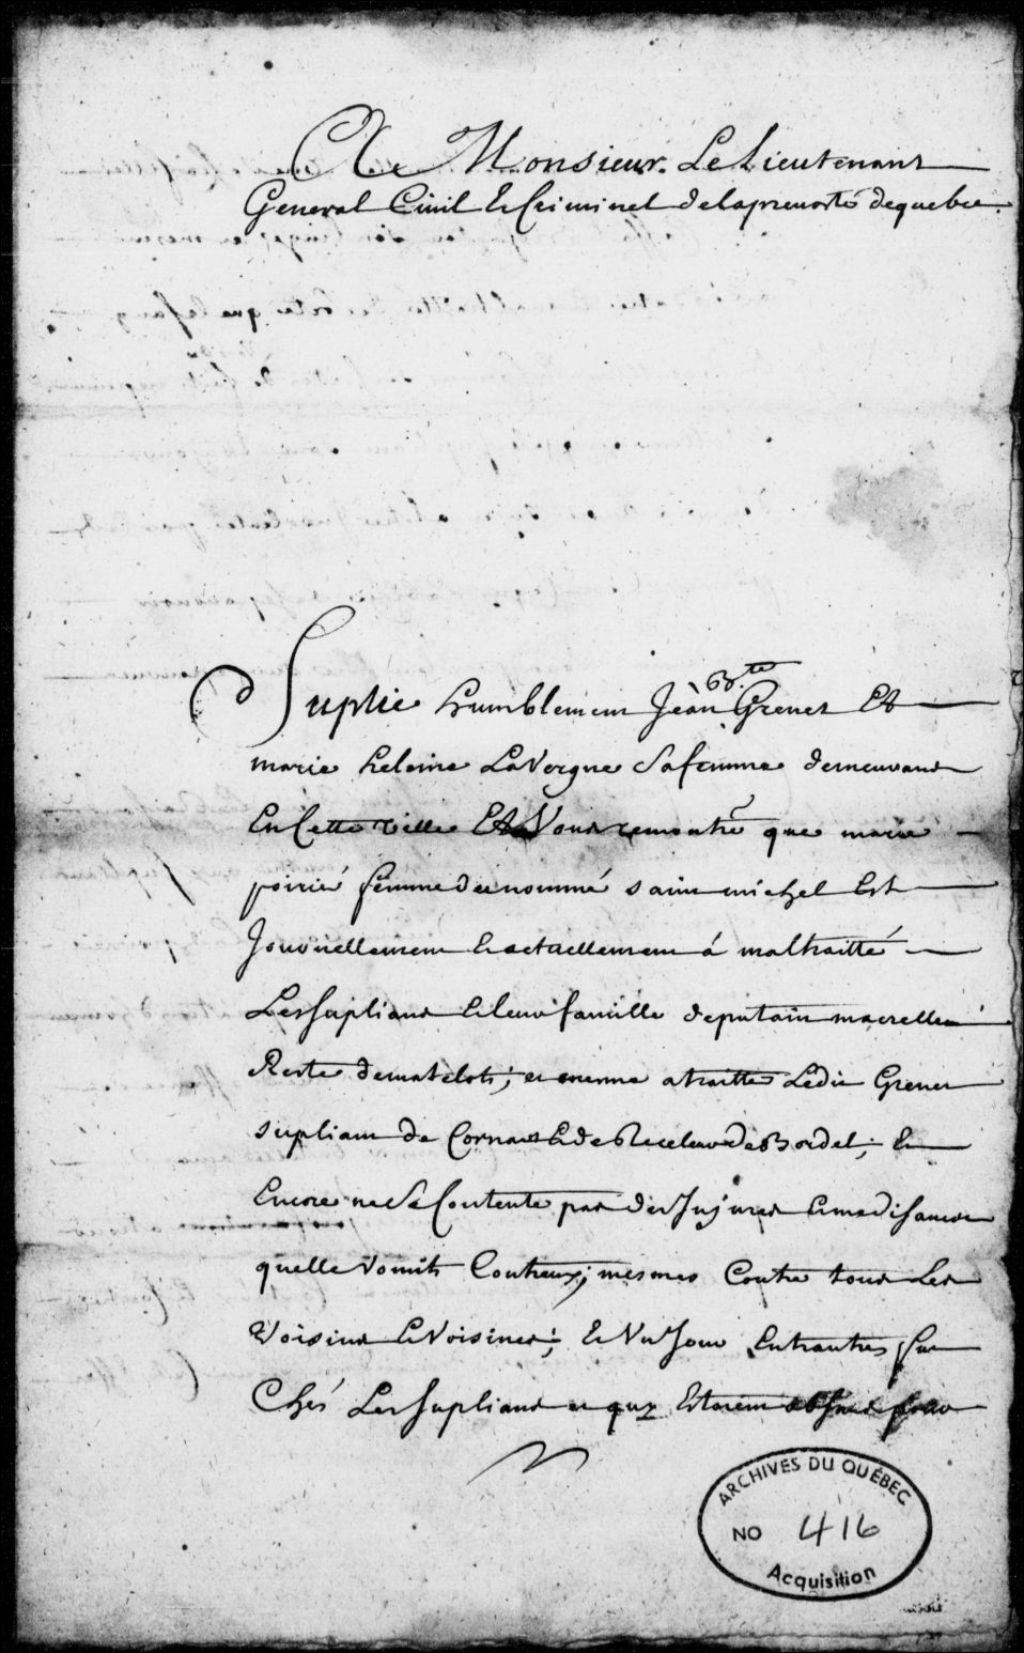 A Monsieur Le Lieutenant
General Ciuil & Criminel delapreuosté dequebec
Suplie humblement Jean Bte Grenet Et
marie heleine LaVergne Safemme demeurant
En Cette ville Et Vous remontre que marie
poirié femme du nommé saint michel Est
Journellement & actuellement á maltraitté
Les supliants & leur famille deputain macrelle
Reste dematelots; et mesme atraitté Ledit Grenet
supliant de Cornard & de Receleur de Bordel; &
Encore ne Se Contente pas des Injures & medisances
quelle Vomit Contreux; mesmes Contre tous Les
Voisins & Voisines; & Vn Jour Entrautres fut
Chés Les supliants et qui Estoient
ARCHIVES DU QUÉBEC
NO 416
Acquisition